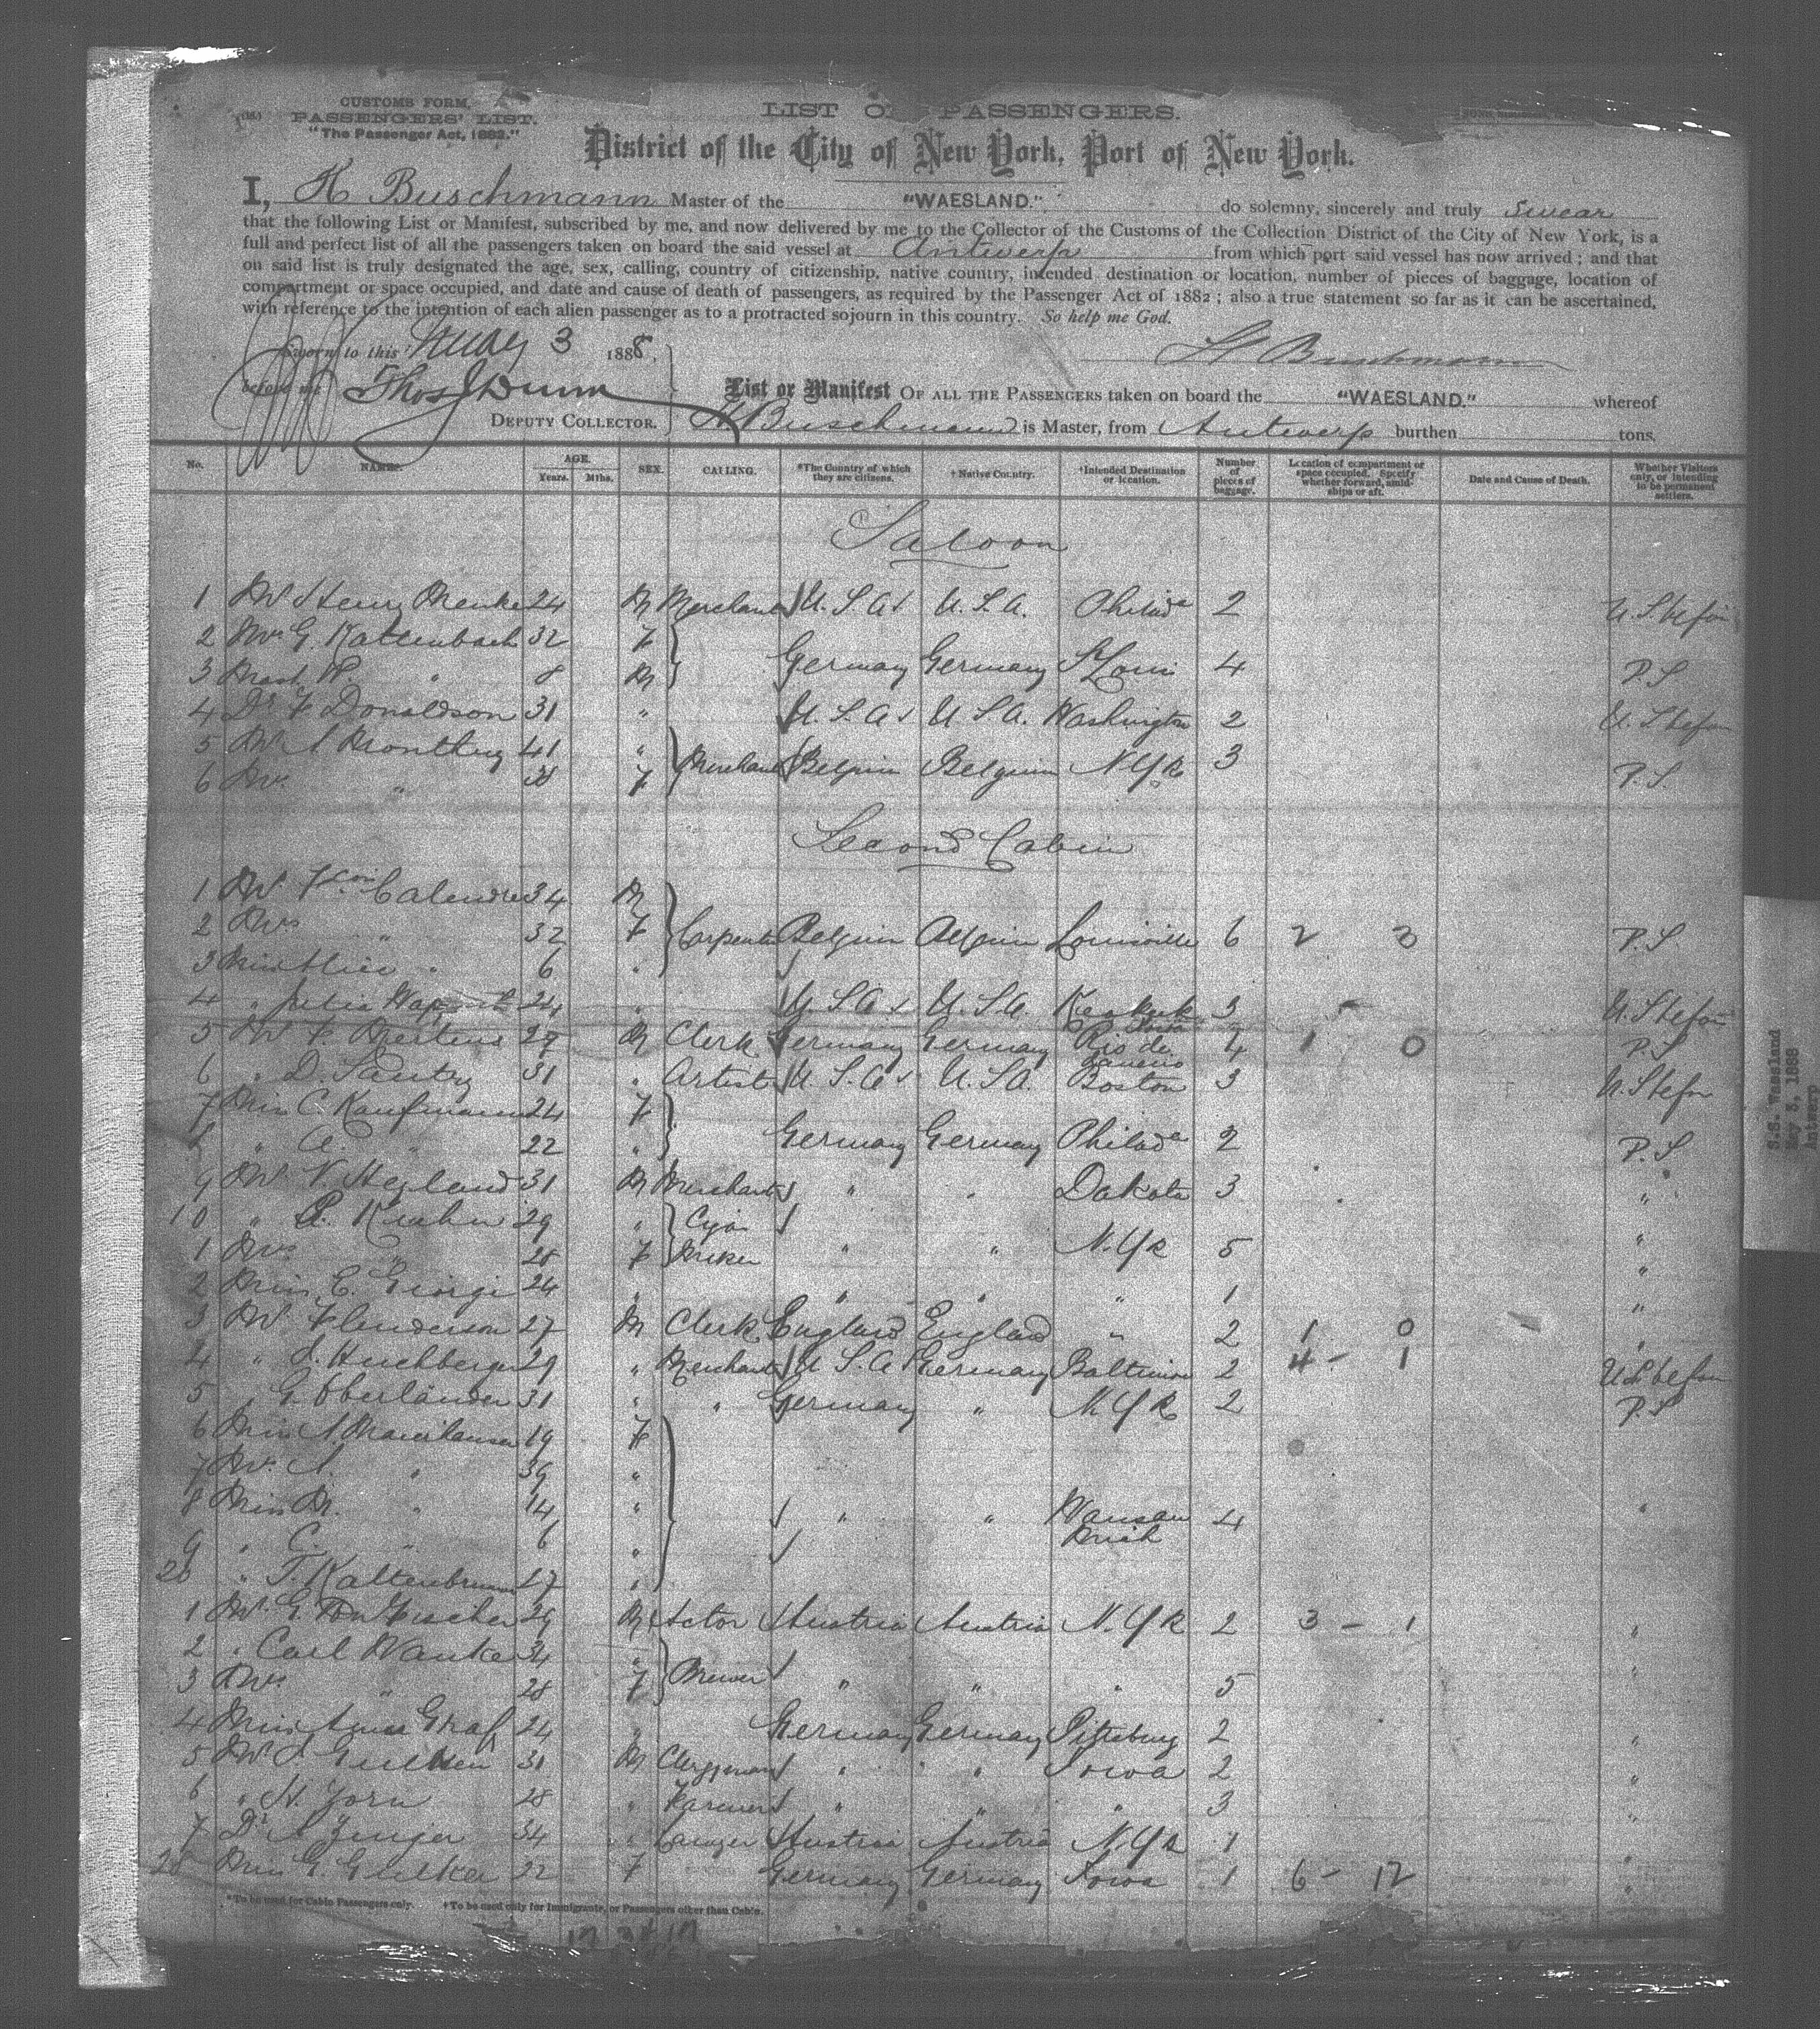 CUSTOMS FORM.
PASSENGERS' LIST.
"The Passenger Act, 1882."
LIST OF PASSENGERS.
District of the City of New York, Port of New York.
I, H Buschmann Master of the "WAESLAND." do solemny, sincerely and truly swear
that the following List or Manifest, subscribed by me, and now delivered by me to the Collector of the Customs of the Collection District of the City of New York, is a
full and perfect list of all the passengers taken on board the said vessel at Antwerp from which port said vessel has now arrived; and that
on said list is truly designated the age, sex, calling, country of citizenship, native country, intended destination or location, number of pieces of baggage, location of
compartment or space occupied, and date and cause of death of passengers, as required by the Passenger Act of 1882; also a true statement so far as it can be ascertained,
with reference to the intention of each alien passenger as to a protracted sojourn in this country. So help me God.
Sworn to this May 3 1888,
H Buschmann
before me Thos J Dunn
DEPUTY COLLECTOR.
List or Manifest OF ALL THE PASSENGERS taken on board the "WAESLAND." whereof
H Buschmann is Master, from Antwerp burthen tons.
No. NAMES. AGE. Years. Mths. SEX. CALLING. *The Country of which they are citizens. †Native Country. †Intended Destination or location. Number of pieces of baggage. Location of compartment or space occupied. Specify whether forward, amidships or aft. Date and Cause of Death. Whether Visitors only, or intending to be permanent settlers.
Saloon
1 Mr Henry Menke 24 M Merchant U.S.A U.S.A. Philade 2
2 Mrs G. Kattenbach 32 F
3 Mast. 8 M Germany Germany St Louis 4 P.S
4 Dr F Donaldson 31 " U.S.A U.S.A. Washington 2
5 Mr 41 " Merchant Belgium Belgium N.Y.K 3
6 Mrs " 38 F P.S.
Second Cabin
1 Mr Calendre 34 M
2 Mrs " 32 F Carpenter Belgium Belgium Louisville 6 2 3 P.S
3 Miss Alice " 6 "
4 " Julia 24 " U.S.A U.S.A. Keokuk Iowa 3
5 Mr F. Mertens 29 M Clerk Germany Germany Rio de Janeiro 4 1 0 P.S
6 " D. Santry 31 " Artist U.S.A U.S.A. Boston 3
7 Miss C. Kaufmann 24 F
8 " A. " 22 " Germany Germany Philade 2 P.S
9 Mr V. Heyland 31 M Merchant " " Dakota 3 "
10 " 29 " Cigar
1 Mrs " 28 F Maker " " N.Y.K 5 "
2 Miss E. Giorgi 24 " " " " 1 "
3 Mr Henderson 27 M Clerk England England " 2 1 0 "
4 " 29 " Merchant U.S.A Germany Baltimore 2 4 - 1
5 " G. Oberländer 31 " " Germany " N.Y.K 2 P.S
6 Miss A. 19 F
7 Mrs A. " 39 "
8 Miss M. " 14 " " " Wausau Mich 4 "
9 " C. " 6 "
20 " T. Kaltenbrunn 17 "
1 Mr G. Von Fischer 29 M Actor Austria Austria N.Y.K 2 3 - 1 "
2 " Carl Wanke 34 "
3 Mrs " 28 F Brewer " " " 5 "
4 Miss Agnes Graf 24 " Germany Germany Pittsburg 2 "
5 Mr 31 M Clergyman " " Iowa 2 "
6 " H. Jorn 28 " Farmer " " " 3 "
7 Dr A Zinger 34 " Lawyer Austria Austria N.Y.K 1 "
28 Miss G. Guelker 22 F Germany Germany Iowa 1 6 - 12 "
*To be used for Cabin Passengers only. †To be used only for Immigrants, or Passengers other than Cabin.
S.S. Waesland
May 3, 1888
Antwerp